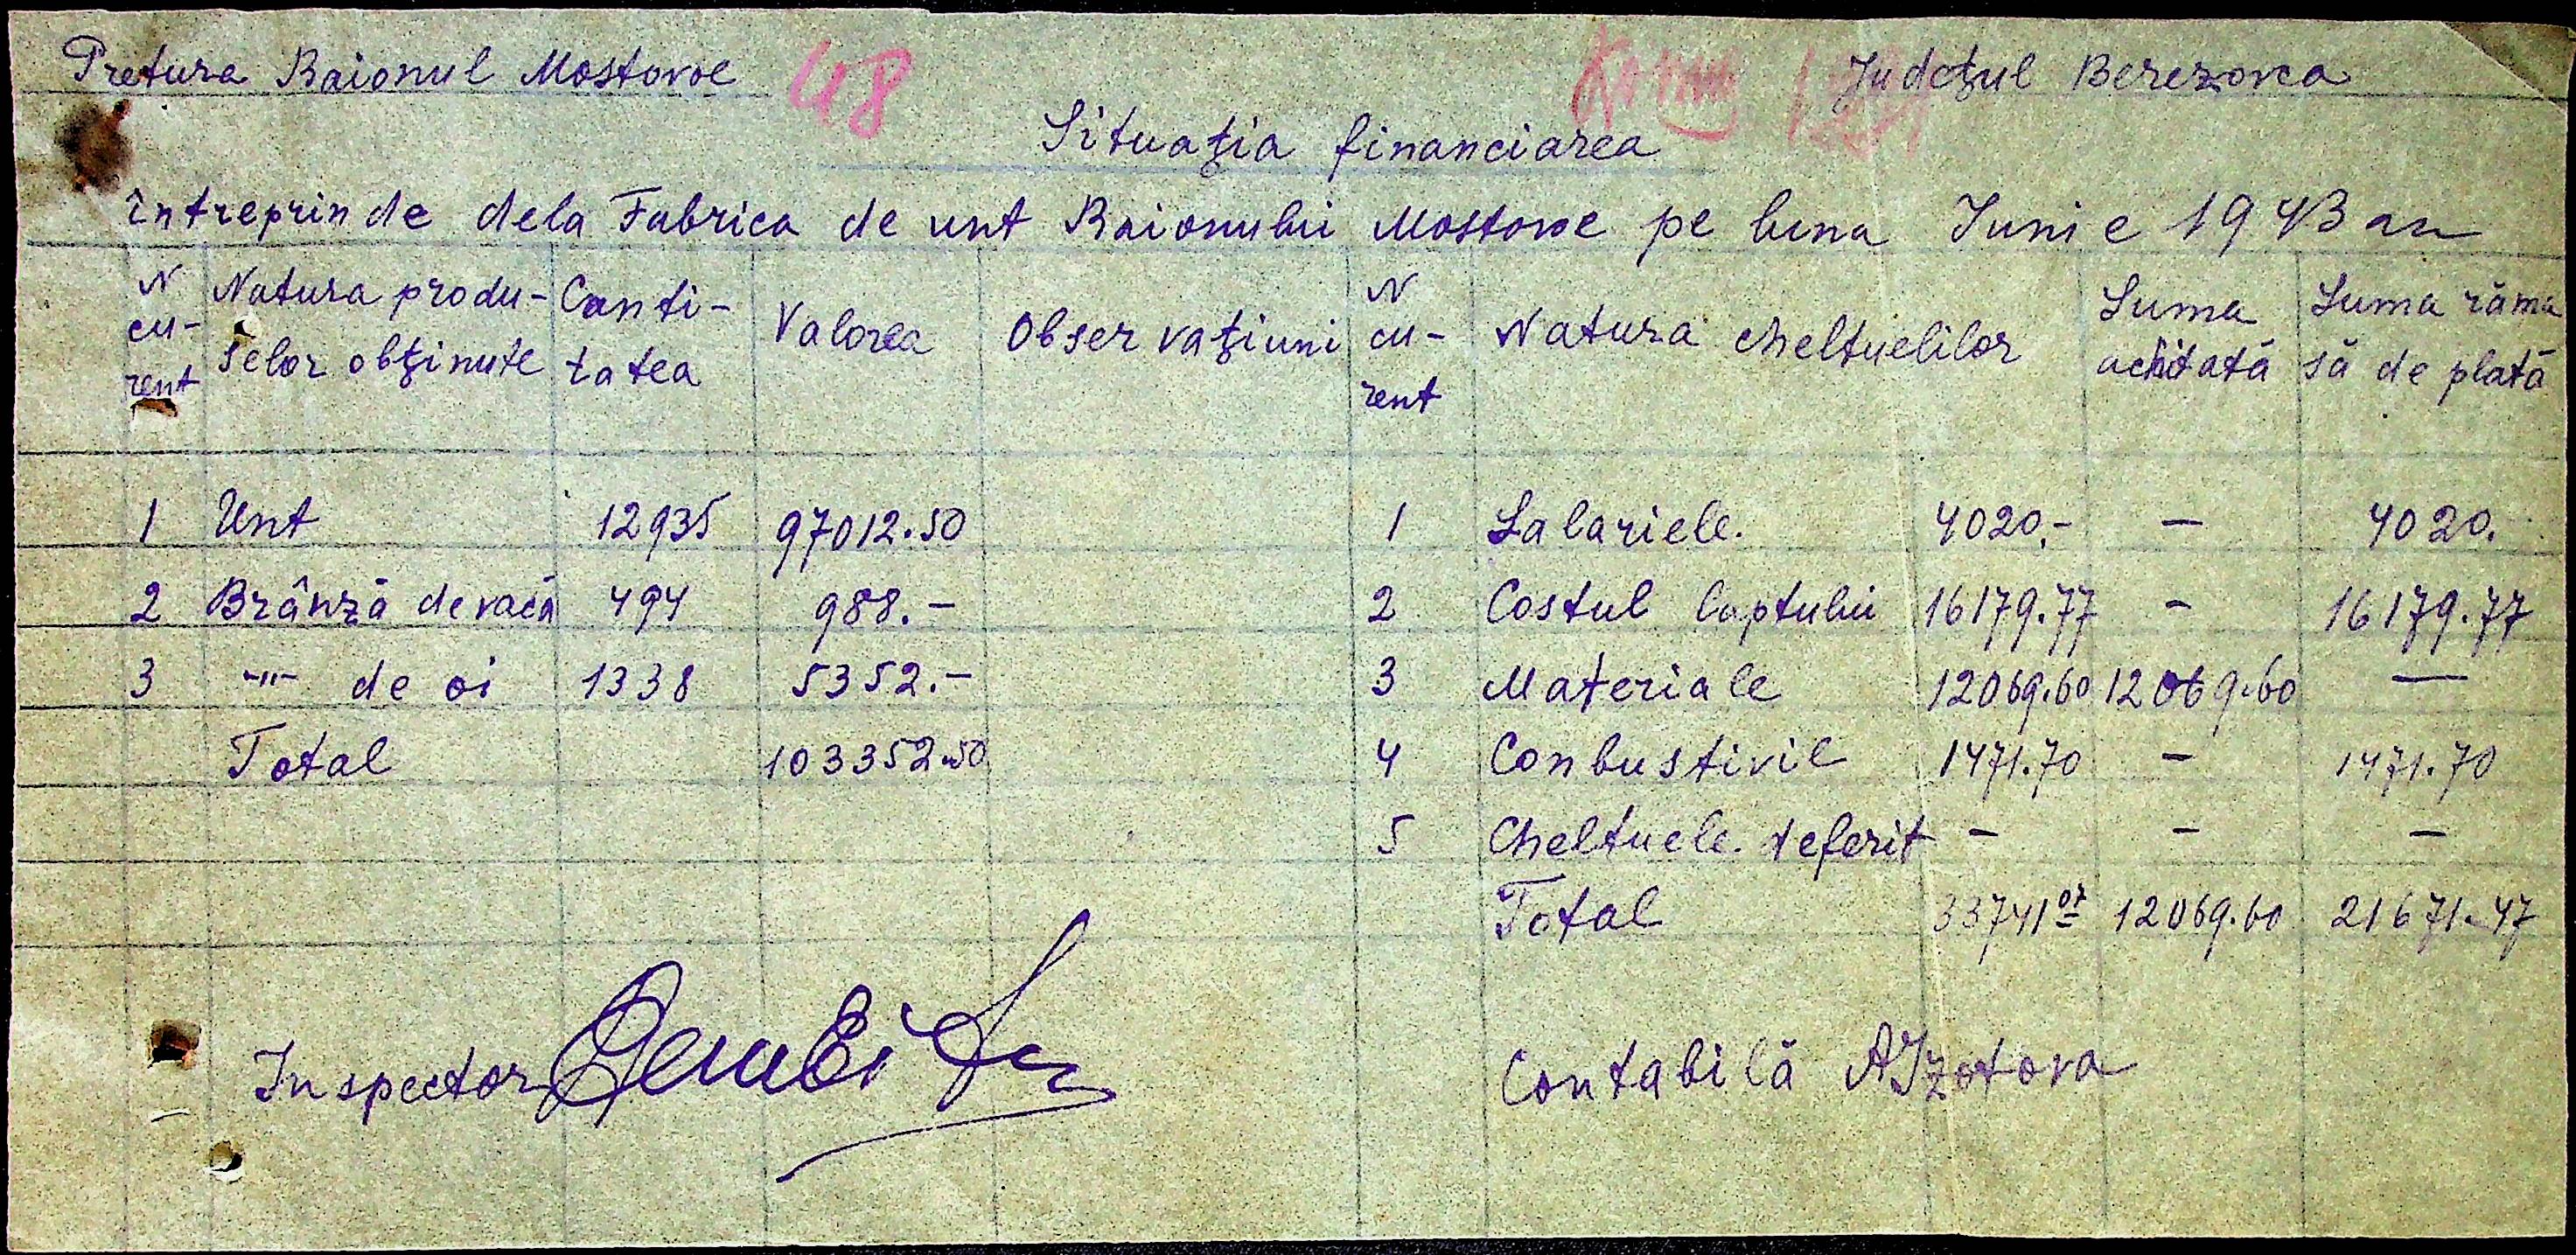 Pretura Raionul Mostovoe 48 Județul Berezovca
Situația financiarea
întreprinde dela Fabrica de unt Raionului Mostovoe pe luna Iunie 1943 an
N cu-rent Natura produ-selor obținute Canti-tatea Valorea Observațiuni N cu-rent Natura cheltuelilor Suma achitată Suma rămasă de plată
1 Unt 12935 97012.50 1 Salariele. 4020.- — 4020.
2 Brânză de vacă 494 988.— 2 Costul laptului 16179.77 — 16179.77
3 -"- de oi 1338 5352.— 3 Materiale 12069.60 12069.60 —
Total 103352.50 4 Conbustivil 1471.70 — 1471.70
5 Cheltuele deferit — — —
Total 33741.07 12069.60 21671.47
Inspector Contabilă AIzotova